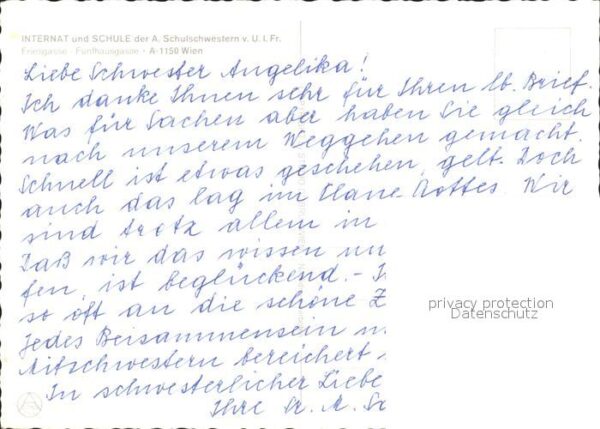 INTERNAT und SCHULE der A. Schulschwestern v. U. l. Fr.
Friesgasse - Fünfhausgasse - A-1150 Wien
Liebe Schwester Angelika!
Ich danke Ihnen sehr für Ihren lb. Brief.
Was für Sachen aber haben Sie gleich
nach unserem Weggehen gemacht.
Schnell ist etwas geschehen, gelt. Doch
auch das lag im Plane Gottes. Wir
sind trotz allem in
Daß wir das wissen
fen, ist beglückend. -
so oft an die schöne Z
Jedes Beisammensein
Mitschwestern bereichert
privacy protection
Datenschutz
In schwesterlicher Liebe
Ihre Sr. M.